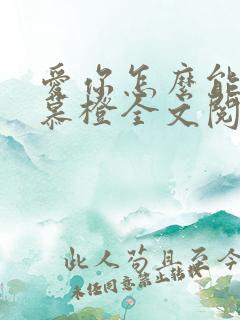 爱你怎麼能
慕橙全文阅
此人苟且至今
未经同意禁止转载